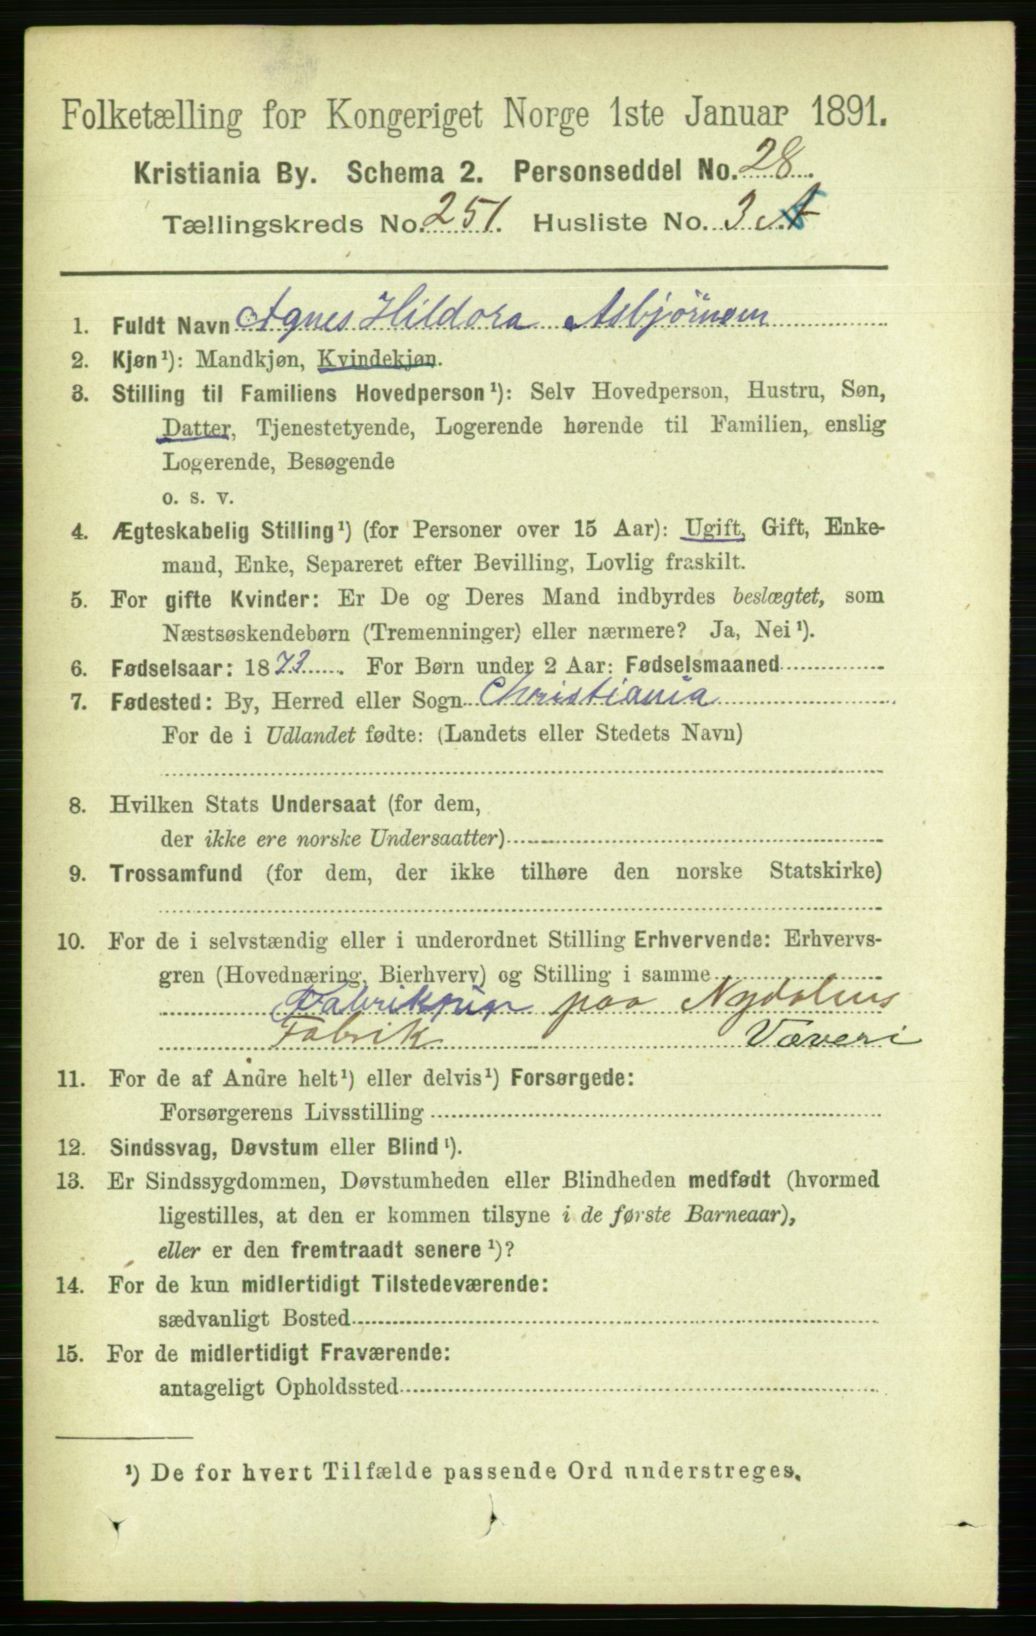 Folketælling for Kongeriget Norge 1ste Januar 1891.
Kristiania By. Schema 2. Personseddel No. 28.
Tællingskreds No. 251. Husliste No. 3 A
1. Fuldt Navn Agnes Hildora Asbjørnsen
2. Kjøn¹): Mandkjøn, Kvindekjøn.
3. Stilling til Familiens Hovedperson¹): Selv Hovedperson, Hustru, Søn,
Datter, Tjenestetyende, Logerende hørende til Familien, enslig
Logerende, Besøgende
o. s. v.
4. Ægteskabelig Stilling¹) (for Personer over 15 Aar): Ugift, Gift, Enke-
mand, Enke, Separeret efter Bevilling, Lovlig fraskilt.
5. For gifte Kvinder: Er De og Deres Mand indbyrdes beslægtet, som
Næstsøskendebørn (Tremenninger) eller nærmere? Ja, Nei¹).
6. Fødselsaar: 1873. For Børn under 2 Aar: Fødselsmaaned
7. Fødested: By, Herred eller Sogn Christiania
For de i Udlandet fødte: (Landets eller Stedets Navn)
8. Hvilken Stats Undersaat (for dem,
der ikke ere norske Undersaatter)
9. Trossamfund (for dem, der ikke tilhøre den norske Statskirke)
10. For de i selvstændig eller i underordnet Stilling Erhvervende: Erhvervs-
gren (Hovednæring, Bierhverv) og Stilling i samme
Fabrikpige paa Nydalens
Fabrik Væveri
11. For de af Andre helt¹) eller delvis¹) Forsørgede:
Forsørgerens Livsstilling
12. Sindssvag, Døvstum eller Blind¹).
13. Er Sindssygdommen, Døvstumheden eller Blindheden medfødt (hvormed
ligestilles, at den er kommen tilsyne i de første Barneaar),
eller er den fremtraadt senere¹)?
14. For de kun midlertidigt Tilstedeværende:
sædvanligt Bosted
15. For de midlertidigt Fraværende:
antageligt Opholdssted
¹) De for hvert Tilfælde passende Ord understreges.